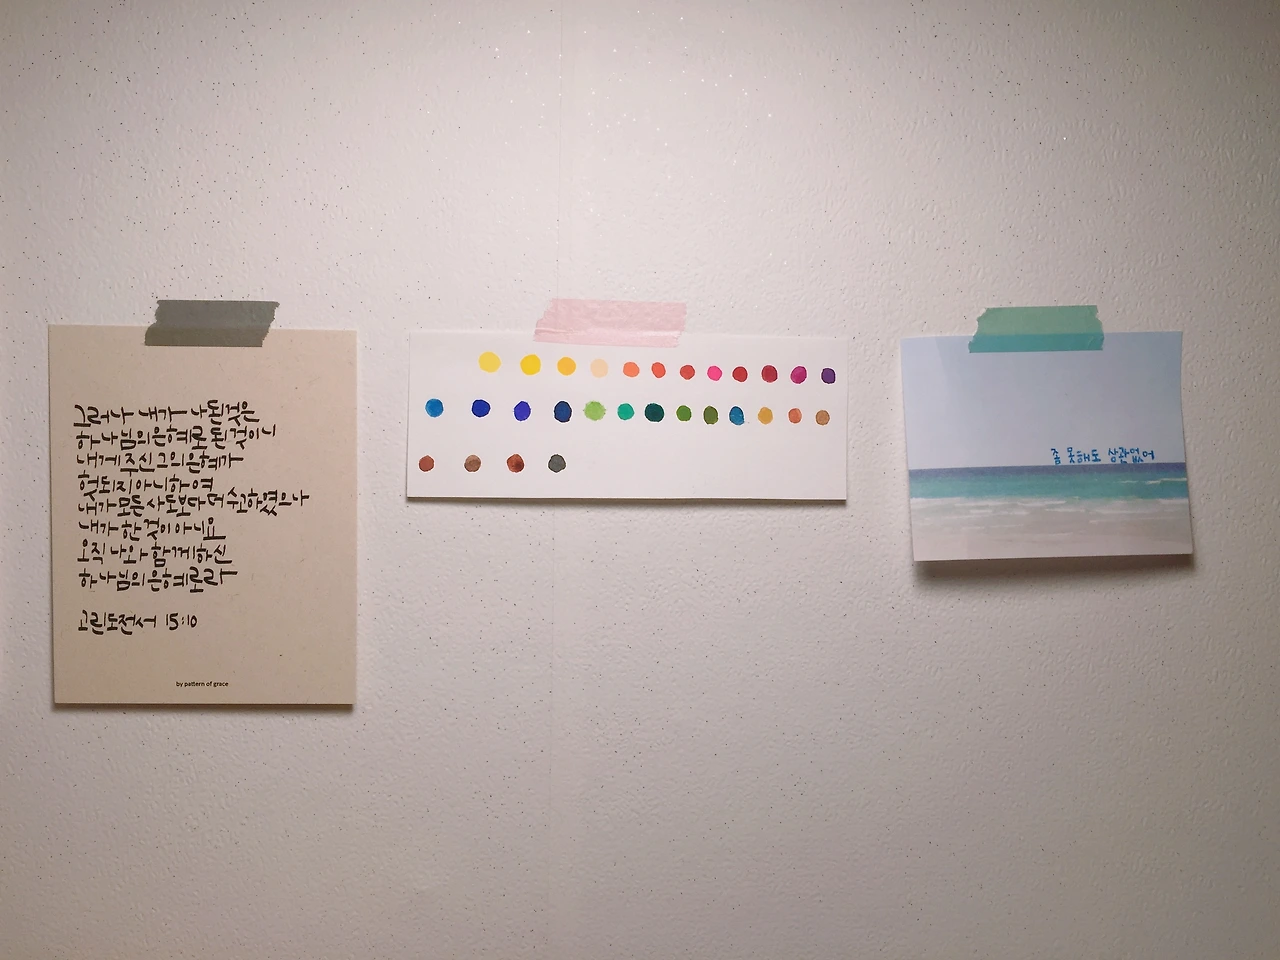 그러나 내가 나 된 것은
하나님의 은혜로 된 것이니
내게 주신 그의 은혜가
헛되지 아니하여
내가 모든 사도보다 더 수고하였으나
내가 한 것이 아니요
오직 나와 함께 하신
하나님의 은혜로라
고린도전서 15:10
by pattern of grace
좀 못해도 상관없어